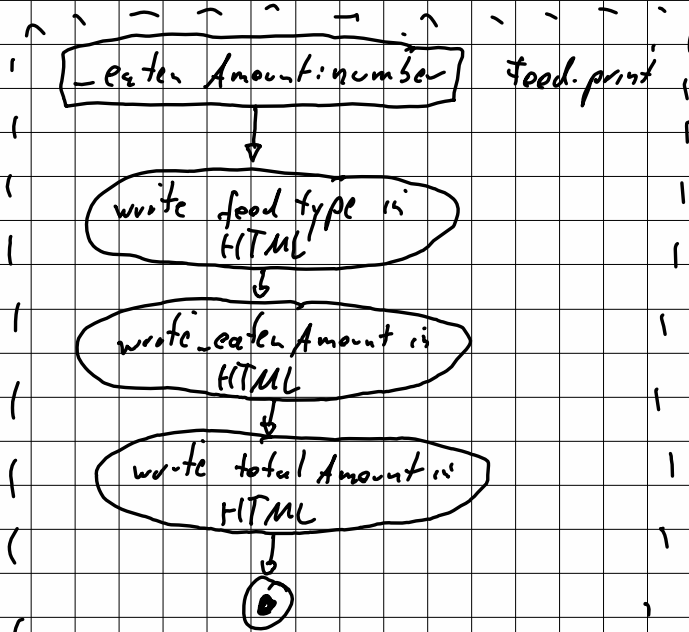 _eaten Amount:number
Food.print
write food type in
HTML
write_eaten Amount in
HTML
write total Amount in
HTML